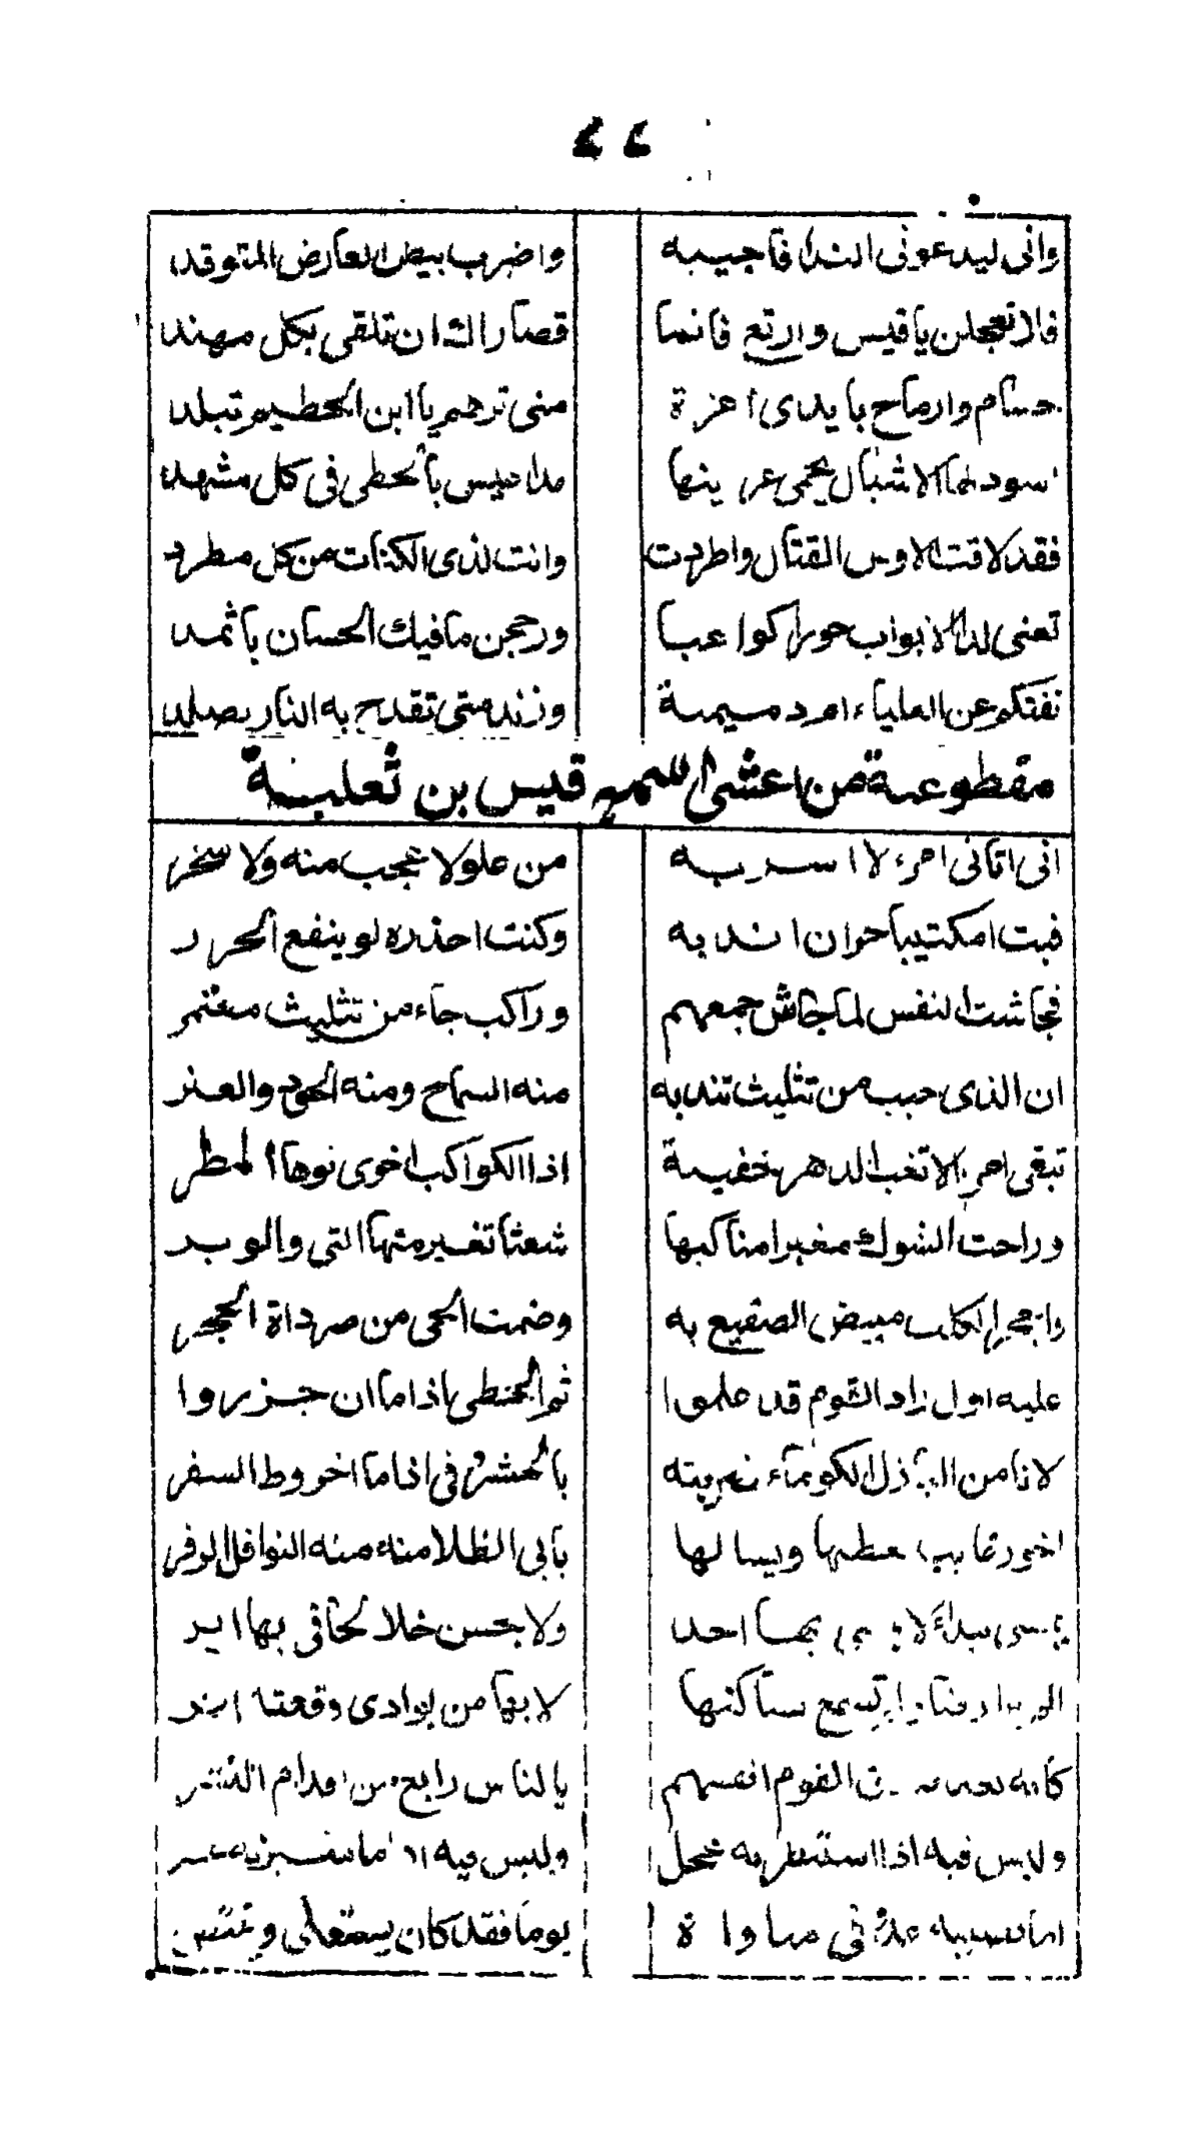 ٤٤
واني ليدعوني الندا فاجيبه واضرب بيض العارض المتوقد
فلا تعجلن يا قيس واربع فانما قصاراك ان تلقى بكل مهند
حسام وارماح بايدى اعزة متى ترهم يا ابن الحطيم تبلد
اسود لها الاشبال يحمى عرينها مداعيس بالخطى فى كل مشهد
فقد لاقت الاوس القتال واطردت وانت لذى الكنات من كل مطرد
تعنى لدا الابواب حورا كواعبا ورجحن ما فيك الحسان باثمد
نفتكم عن العلياء ام دميمة وزند متى تقدح به النار يصلد
مقطوعة من اعشى قيس بن ثعلبة
انى اتانى امرء لا اسر به من علو لا عجب منه ولا سخر
فبت امكتيبا حران اندبه وكنت احذره لو ينفع الحرر
فجاشت النفس لما جاش جمعهم وراكب جاء من تثليث معتمر
ان الذى حبب من تثليث تندبه منه السماح ومنه الجود والعنر
تبقى امرء لا تغب الدهر خفيسة اذا الكواكب اخوى نوها المطر
وراحت الشول مغبرا مناكبها شعثا تغير منها التي والوبر
واجحر الكلب مبيض الصقيع به وضمت الحى من صرداة الحجر
عليه اول زاد القوم قد علموا ثم الخطى اذا ما ان جزروا
لا تامن البازل الكوماء ضربته بالمشرفى اذا ما اخروط السفر
اخو رغايب يعطيها ويسالها يابى الظلامة منه النوافل الوفر
احد ولا بحسن خلا لحافى بها اير
ساكنها لابها من بوادى وقعته اثر
القوم انفسهم بالناس من اقدام
وليس فيه اذا استنظرته عجل وليس فيه اذا عسر
اما يصيبه عدو فى مباواة يوما فقد كان يستعلى